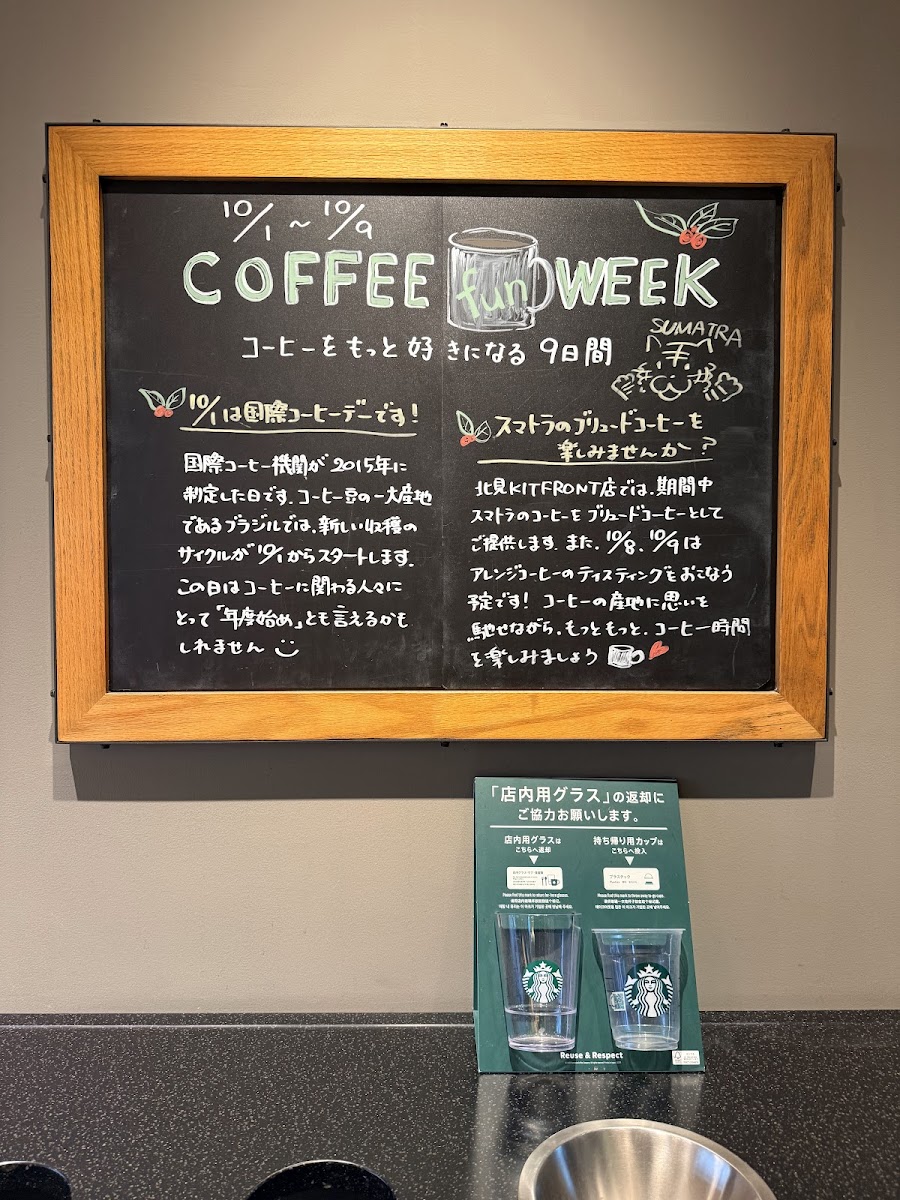 10/1 ~ 10/9
COFFEE fun WEEK
コーヒーをもっと好きになる 9日間
SUMATRA
10/1は国際コーヒーデーです!
国際コーヒー機関が2015年に
制定した日です。コーヒー豆の一大産地
であるブラジルでは、新しい収穫の
サイクルが10/1からスタートします。
この日はコーヒーに関わる人々に
とって「年度始め」とも言えるかも
しれません
スマトラのブリュードコーヒーを
楽しみませんか?
北見KITFRONT店では、期間中
スマトラのコーヒーをブリュードコーヒーとして
ご提供します。また、10/8、10/9は
アレンジコーヒーのテイスティングをおこなう
予定です! コーヒーの産地に思いを
馳せながら、もっともっと、コーヒー時間
を楽しみましょう
「店内用グラス」の返却に
ご協力お願いします。
店内用グラスは
こちらへ返却
持ち帰り用カップは
こちらへ投入
プラスチック
Reuse & Respect